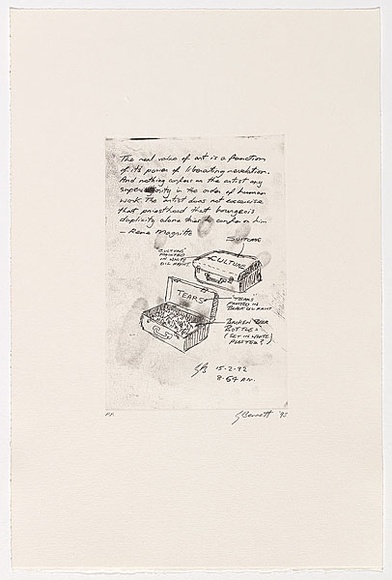 The real value of art is a function
of it's power of liberating revelation.
And nothing confers on the artist any
superiority in the order of human
work. The artist does not exercise
that priesthood that bourgeois
duplicity alone tries to confer on him
– Rene Magritte
SUITCASE
"CULTURE"
PAINTED
IN WHITE
OIL PAINT.
CULTURE
TEARS
"TEARS"
PAINTED IN
BLACK OIL PAINT
BROKEN BEER
BOTTLES
(SET IN WHITE
PLASTER?)
GB 15-2-92
8.54 A.M.
G Bennett '93